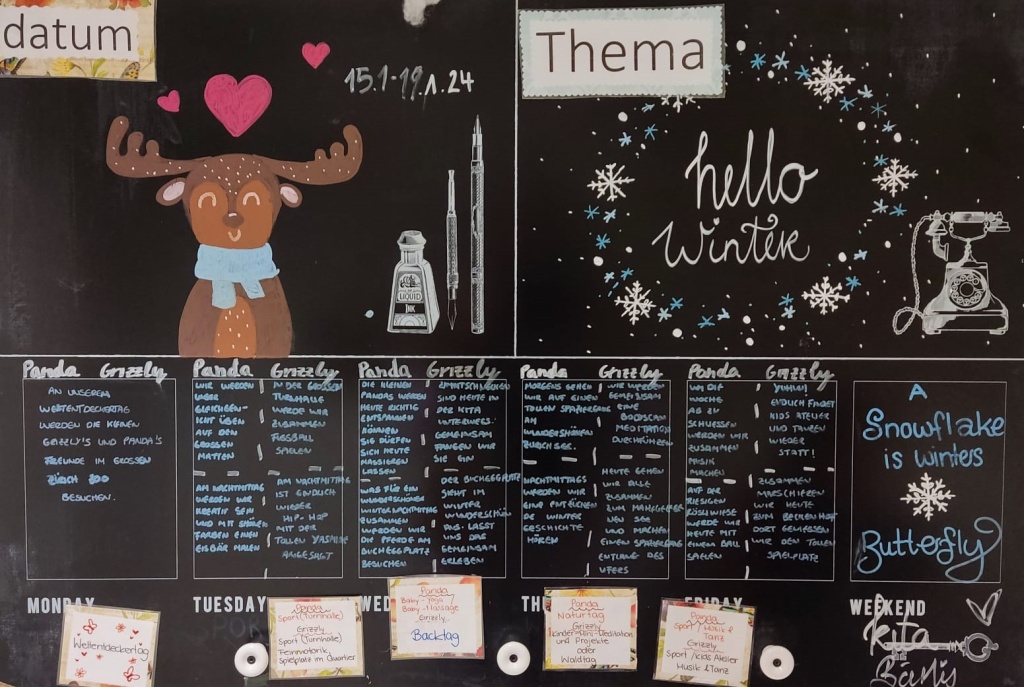 datum
15.1-19.1.24
Thema
hello
Winter
LIQUID
INK
Panda Grizzly
AN UNSEREM
WELTENTDECKERTAG
WERDEN DIE KLEINEN
GRIZZLY'S UND PANDA'S
FREUNDE IM GROSSEN
ZÜRICH ZOO
BESUCHEN.
Panda
WIR WERDEN
ÜBER
GLEICHGEW-
ICHT ÜBEN
AUF DEN
GROSSEN
MATTEN
AM NACHMITTAG
WERDEN WIR
KREATIV SEIN
UND MIT SCHÖNEN
FARBEN EINEN
EISBÄR MALEN
Grizzly
IN DER GROSSEN
TURNHALLE
WERDE WIR
ZUSAMMEN
FUSSBALL
SPIELEN
AM NACHMITTAG
IST ENDLICH
WIEDER
HIP-HOP
MIT DER
TOLLEN YASMINE
ANGESAGT
Panda
DIE KLEINEN
PANDAS WERDEN
HEUTE RICHTIG
ENTSPANNEN
KÖNNEN
SIE DÜRFEN
SICH HEUTE
MASSIEREN
LASSEN
WAS FÜR EIN
WUNDERSCHÖNER
WINTERNACHMITTAG
ZUSAMMEN
WERDEN WIR
DIE PFERDE AM
BUCHEGGPLATZ
BESUCHEN
Grizzly
SIND HEUTE IN
DER KITA
UNTERWEGS.
GEMEINSAM
FANGEN WIR
SIE EIN
DER BUCHEGGPLATZ
SIEHT IM
WINTER
WUNDERSCHÖN
AUS. LASST
UNS DAS
GEMEINSAM
ERLEBEN
Panda
MORGENS GEHEN
WIR AUF EINEN
TOLLEN SPAZIERGANG
AM
WUNDERSCHÖNEN
ZÜRICHSEE.
NACHMITTAGS
WERDEN WIR
EINE
DE WINTER
GESCHICHTE
HÖREN
Grizzly
WIR WERDEN
GEMEINSAM
EINE
BODYSCAN
MEDITATION
DURCHFÜHREN
HEUTE GEHEN
WIR ALLE
ZUSAMMEN
ZUM
SEE
UND MACHEN
EINEN SPAZIERGANG
ENTLANG DES
UFERS
Panda
UM DIE
WOCHE
AB ZU
SCHLIESSEN
WERDEN WIR
ZUSAMMEN
MUSIK
MACHEN
AUF DER
RIESIGEN
RÖSLIWIESE
WERDE WIR
HEUTE MIT
EINEM BALL
SPIELEN
Grizzly
YUHUU
ENDLICH FINDET
KIDS ATELIER
UND TANZEN
WIEDER
STATT!
ZUSAMMEN
MARSCHIEREN
WIR HEUTE
ZUM BECKENHOF
DORT GENIESSEN
WIR DEN TOLLEN
SPIELPLATZ
A
Snowflake
is winters
Butterfly
MONDAY
TUESDAY
WED
TH
FRIDAY
WEEKEND
Weltentdeckertag
Panda
Sport (Turnhalle)
Grizzly
Sport (Turnhalle)
Feinmotorik,
Spielplatz im Quartier
Panda
Baby-Yoga
Baby-Massage
Grizzly
Backtag
Panda
Naturtag
Grizzly
Kinder-Mini-Meditation
und Projekte
oder
Waldtag
Panda
Sport / Musik &
Tanz
Grizzly
Sport /Kids Atelier
Musik & Tanz
kita
Bärlis